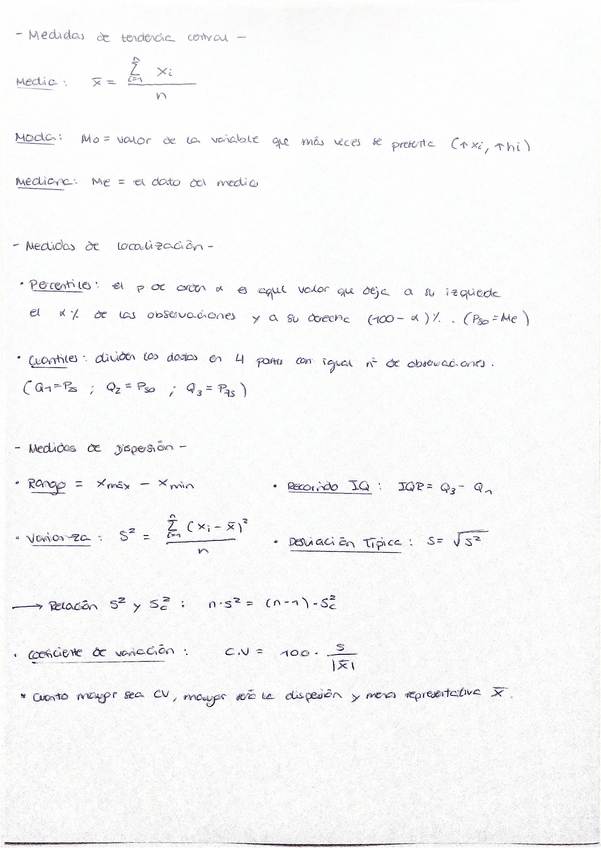 - Medidas de tendencia central -
Media: x̄ = Σ(i=1→n) xi / n
Moda: Mo = valor de la variable que más veces se presenta (↑xi, ↑hi)
Mediana: Me = el dato del medio
- Medidas de localización -
• Percentiles: el p de orden α es aquel valor que deja a su izquierda
el α% de las observaciones y a su derecha (100-α)%. (P50=Me)
• Cuantiles: dividen los datos en 4 partes con igual nº de observaciones.
(Q1=P25 ; Q2=P50 ; Q3=P75)
- Medidas de dispersión -
• Rango = xmáx - xmin • Recorrido IQ: IQR= Q3 - Q1
• Varianza: S² = Σ(i=1→n) (xi - x̄)² / n • Desviación Típica: S= √S²
→ Relación S² y Sc²: n·S² = (n-1)·Sc²
• Coeficiente de variación: C.V = 100 · S / |x̄|
* Cuanto mayor sea CV, mayor será la dispersión y menos representativa x̄.